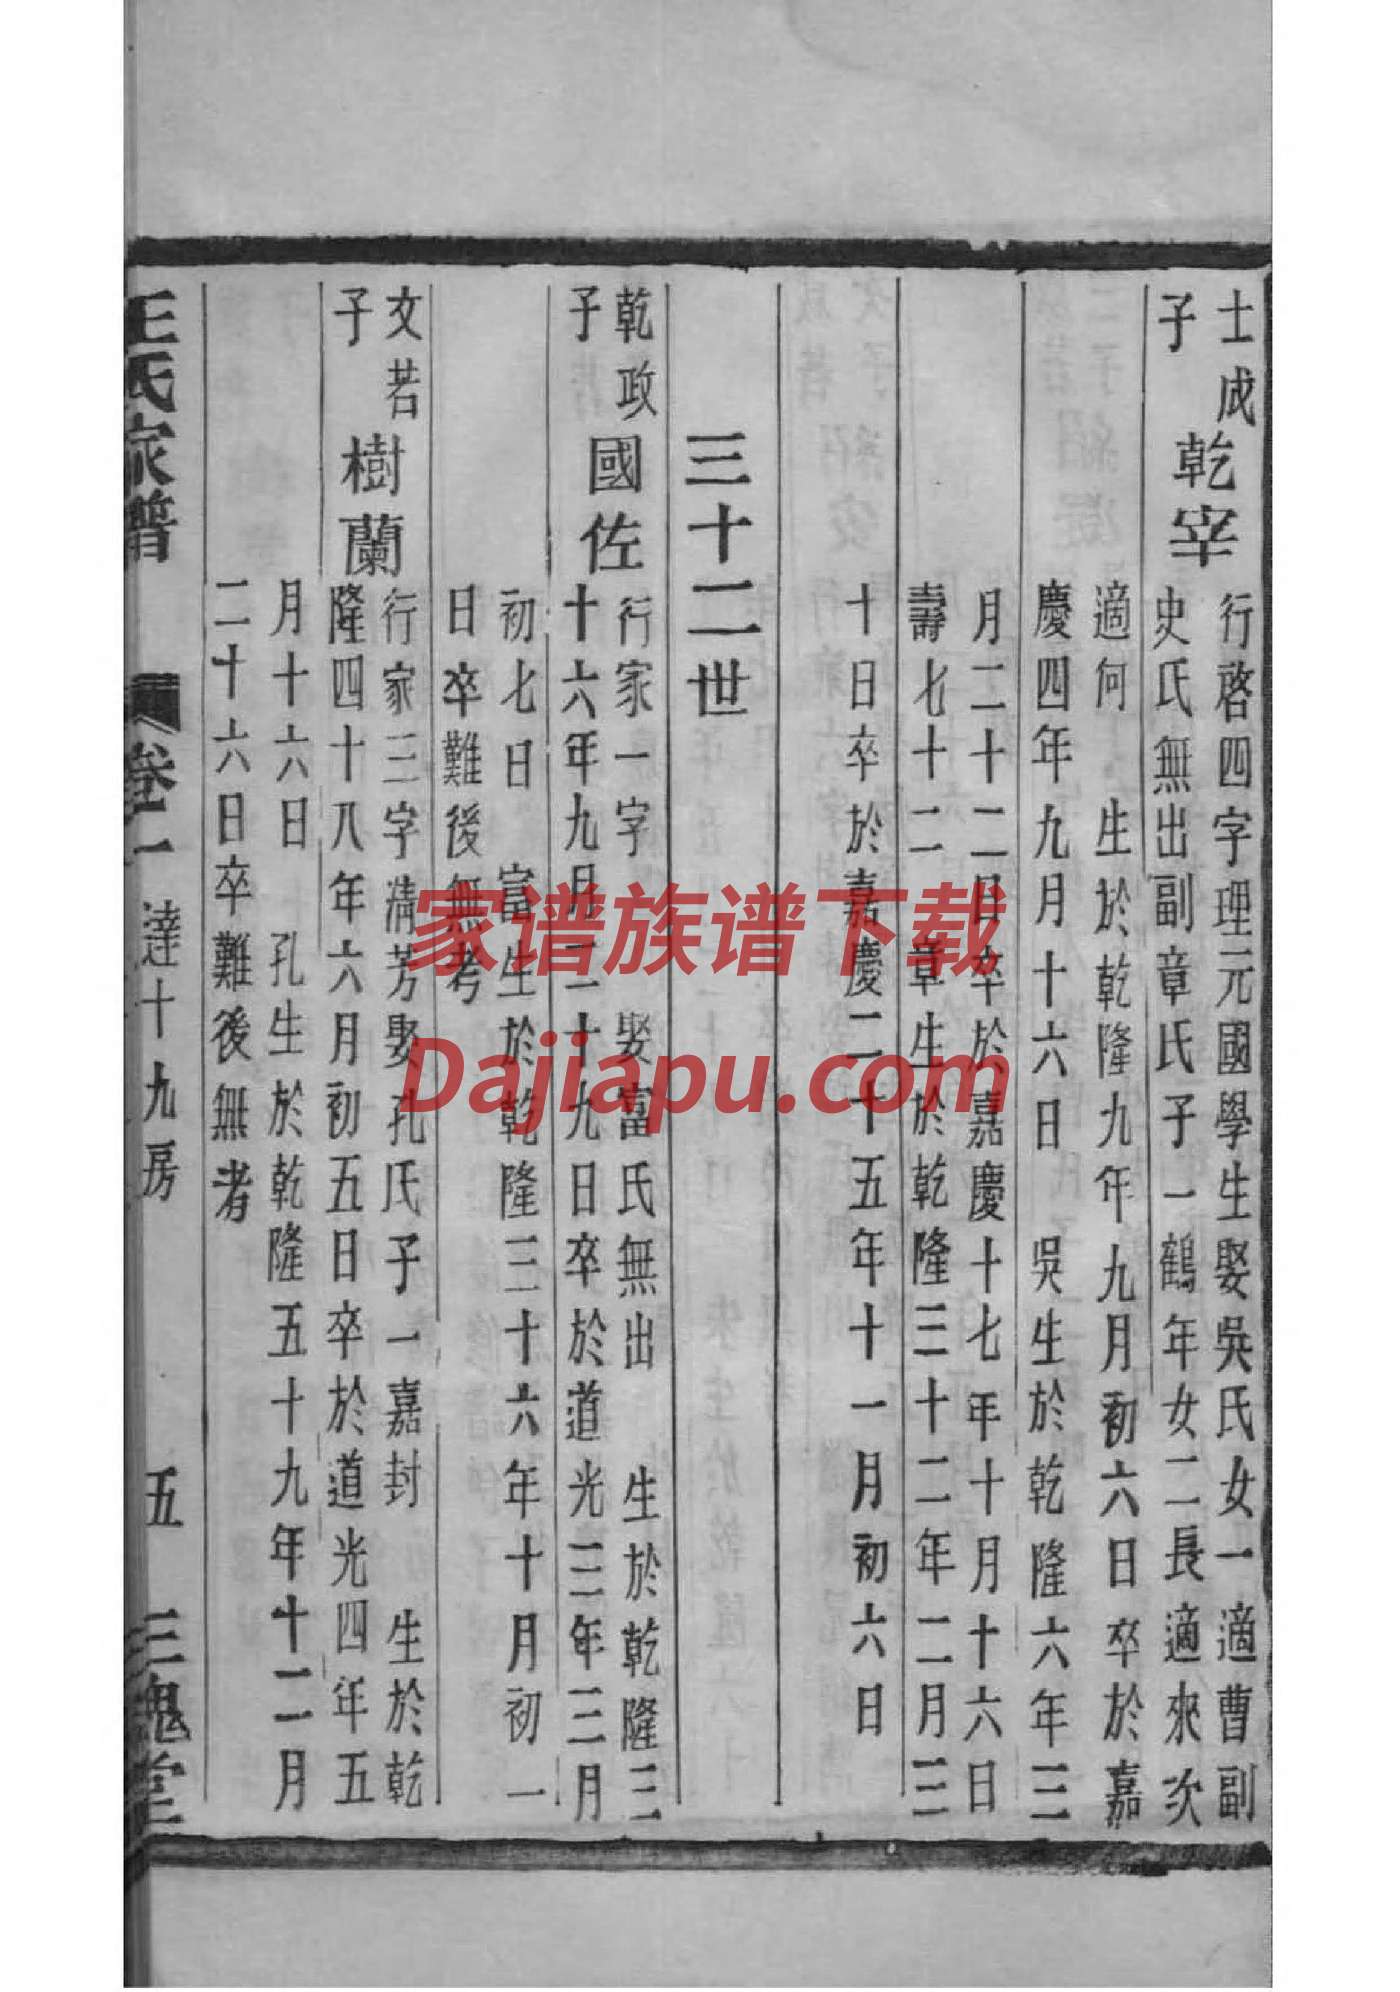 士成
子
乾宰
行啓四字理元國學生娶吳氏女一適曹副
史氏無出副章氏子一鶴年女二長適來次
適何　生於乾隆九年九月初六日卒於嘉
慶四年九月十六日　吳生於乾隆六年三
月二十二日卒於嘉慶十七年十月十六日
壽七十二　章生於乾隆三十二年二月三
十日卒於嘉慶二十五年十一月初六日
三十二世
乾政
子
國佐
行家一字　娶富氏無出　生於乾隆三
十六年九月二十九日卒於道光三年三月
初七日　富生於乾隆三十六年十月初一
日卒難後無考
文若
子
樹蘭
行家三字清芳娶孔氏子一嘉封　生於乾
隆四十八年六月初五日卒於道光四年五
月十六日　孔生於乾隆五十九年十二月
二十六日卒難後無考
王氏家譜　卷一　達十九房　五　三槐堂
家谱族谱下载
Dajiapu.com